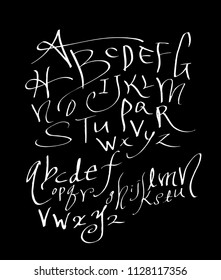 ABCDEFG
HIJKLM
NOPQR
STUV
WXYZ
abcdef
opqrghijklmn
stu
vwxyz
shutterstock.com · 1128117356